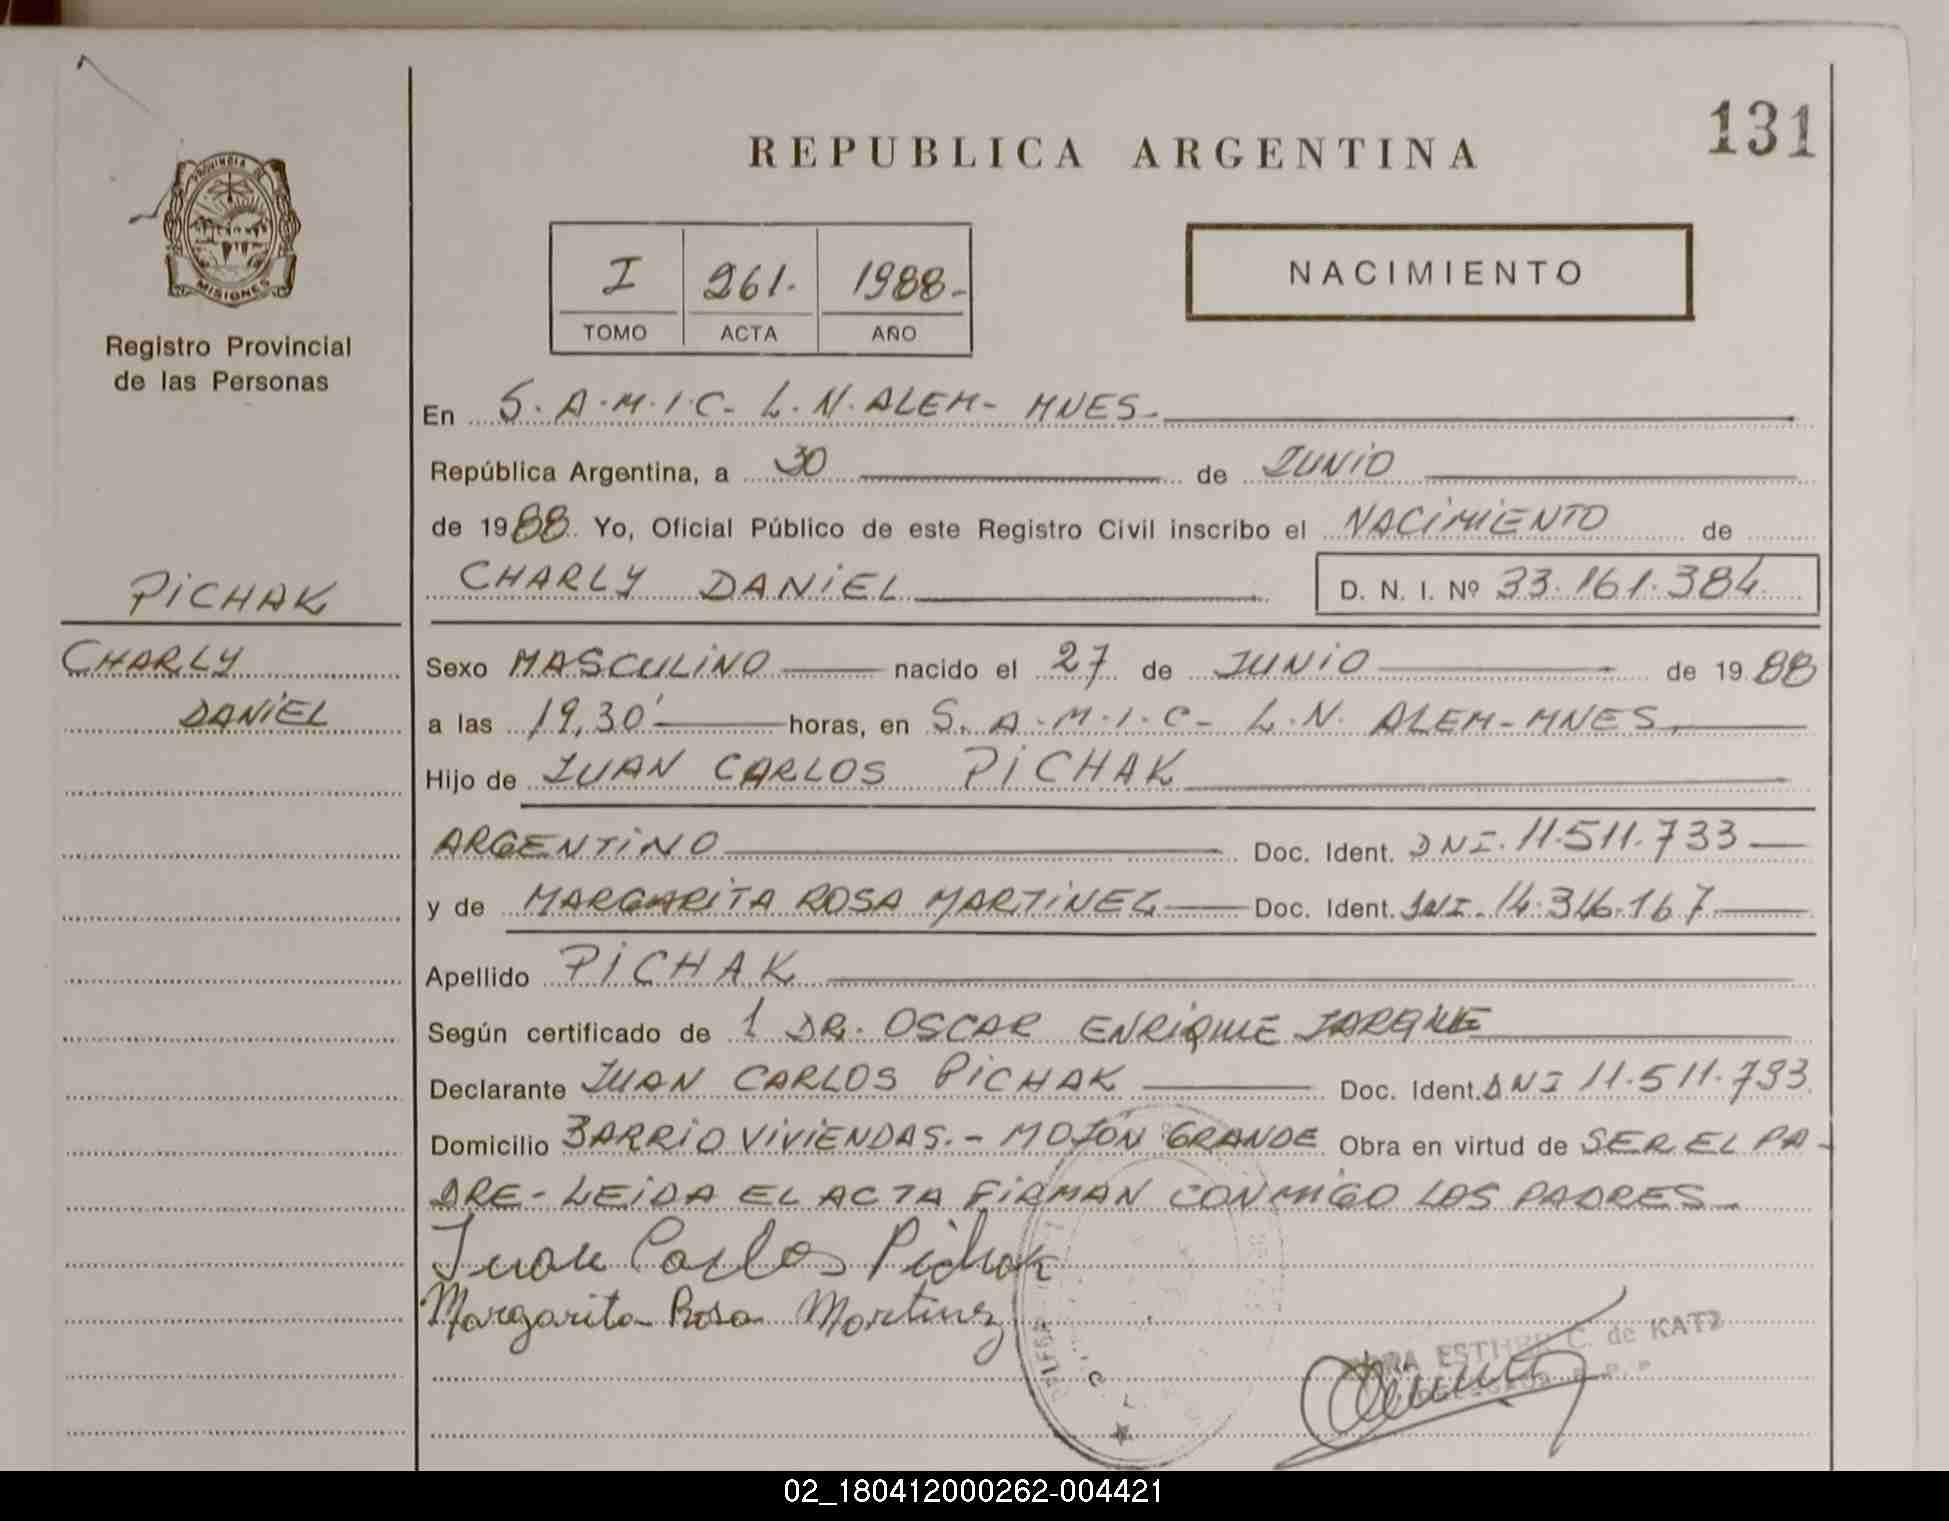 131
REPUBLICA ARGENTINA
PROVINCIA DE
MISIONES
Registro Provincial
de las Personas
I 261. 1988-
TOMO ACTA AÑO
NACIMIENTO
En S.A.M.I.C- L.N.ALEM- MNES-
República Argentina, a 30 de JUNIO
de 1988 Yo, Oficial Público de este Registro Civil inscribo el NACIMIENTO de
CHARLY DANIEL D. N. I. Nº 33.161.384
PICHAK
CHARLY
DANIEL
Sexo MASCULINO nacido el 27 de JUNIO de 1988
a las 19,30' horas, en S.A.M.I.C- L.N. ALEM-MNES
Hijo de JUAN CARLOS PICHAK
ARGENTINO Doc. Ident. DNI. 11.511.733
y de MARGARITA ROSA MARTINEZ Doc. Ident. DNI. 14.346.167
Apellido PICHAK
Según certificado de 1 DR. OSCAR ENRIQUE JARQUE
Declarante JUAN CARLOS PICHAK Doc. Ident. DNI 11.511.733
Domicilio BARRIO VIVIENDAS.- MOJON GRANDE Obra en virtud de SER EL PA-
DRE- LEIDA EL ACTA FIRMAN CONMIGO LOS PADRES-
Juan Carlos Pichak
Margarita Rosa Martinez
ESTHER C. de KATZ
02_180412000262-004421